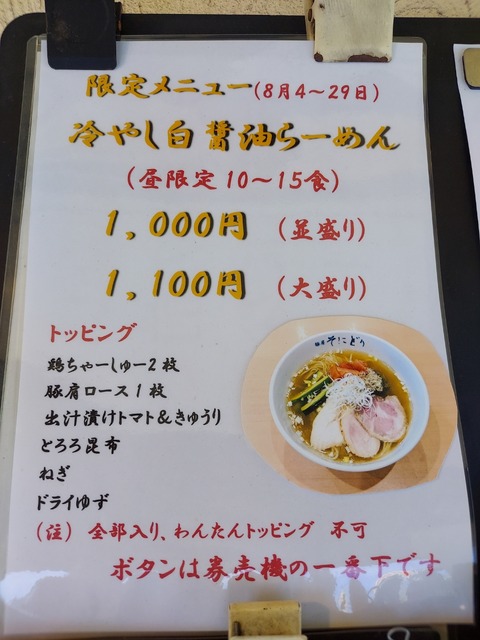 限定メニュー(8月4～29日)
冷やし白醤油らーめん
(昼限定10～15食)
1,000円 (並盛り)
1,100円 (大盛り)
トッピング
鶏ちゃーしゅー2枚
豚肩ロース1枚
出汁漬けトマト&きゅうり
とろろ昆布
ねぎ
ドライゆず
(注) 全部入り、わんたんトッピング 不可
ボタンは券売機の一番下です
そにどり